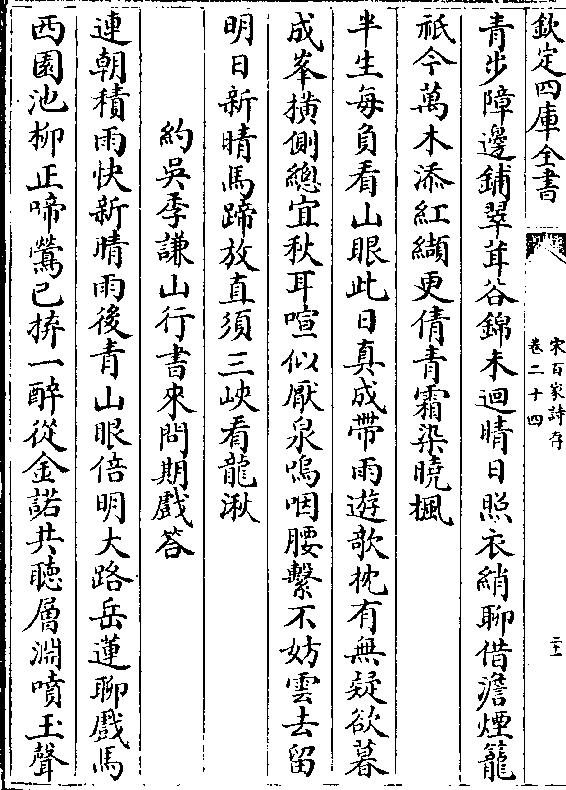 欽定四庫全書
宋百家詩存
卷二十四
二十二
青步障邊鋪翠茸谷錦未迴晴日照衣綃聊借澹煙籠
祇今萬木添紅纈更倩青霜染曉楓
半生每負看山眼此日真成帶雨遊歌枕有無疑欲暮
成峯橫側總宜秋耳喧似厭泉嗚咽腰繫不妨雲去留
明日新晴馬蹄放直須三峽看龍湫
約吳季謙山行書來問期戲答
連朝積雨快新晴雨後青山眼倍明大路岳蓮聊戲馬
西園池柳正啼鶯已拚一醉從金諾共聽層淵噴玉聲